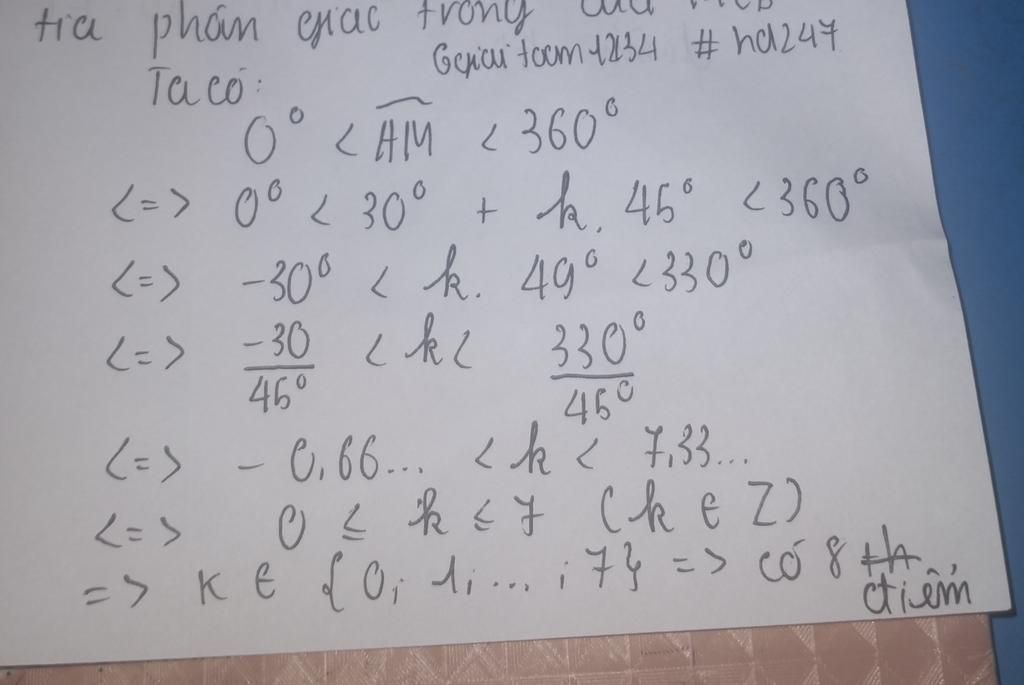 tia phân giác trong của
Giaitoan1234 #hd247
Ta có:
0° < AM < 360°
<=> 0° < 30° + k. 45° < 360°
<=> -30° < k. 49° < 330°
<=> -30/45° < k < 330°/45°
<=> - 0,66... < k < 7,33...
<=> 0 ≤ k ≤ 7 (k ∈ Z)
=> K ∈ {0; 1;...; 7} => có 8
điểm